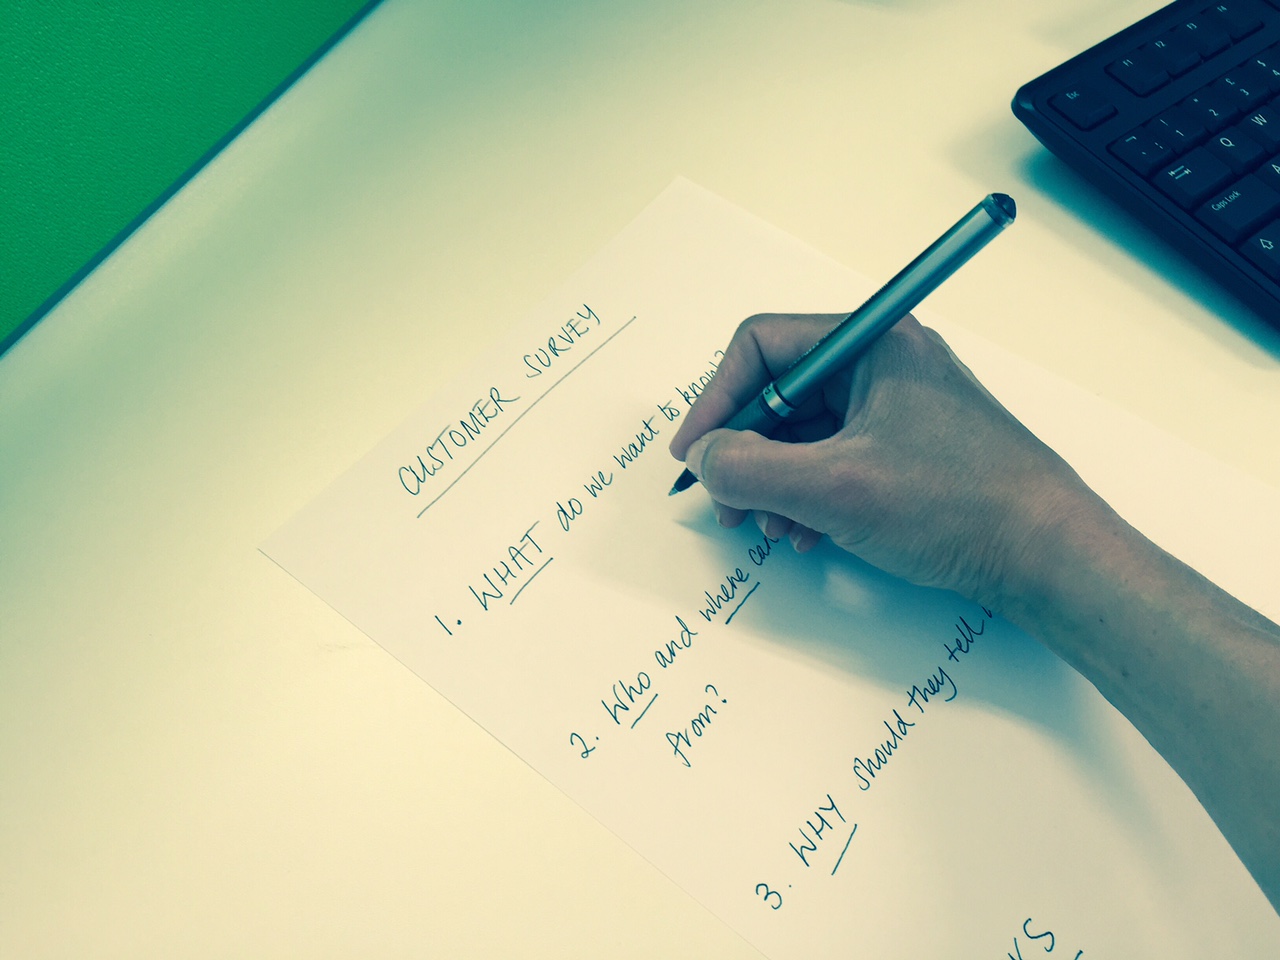 CUSTOMER SURVEY
1. WHAT do we want to know?
2. Who and where can
from?
3. WHY should they tell
Esc
F1
F2
F3
F4
1
2
3
4
Q
W
A
Caps Lock